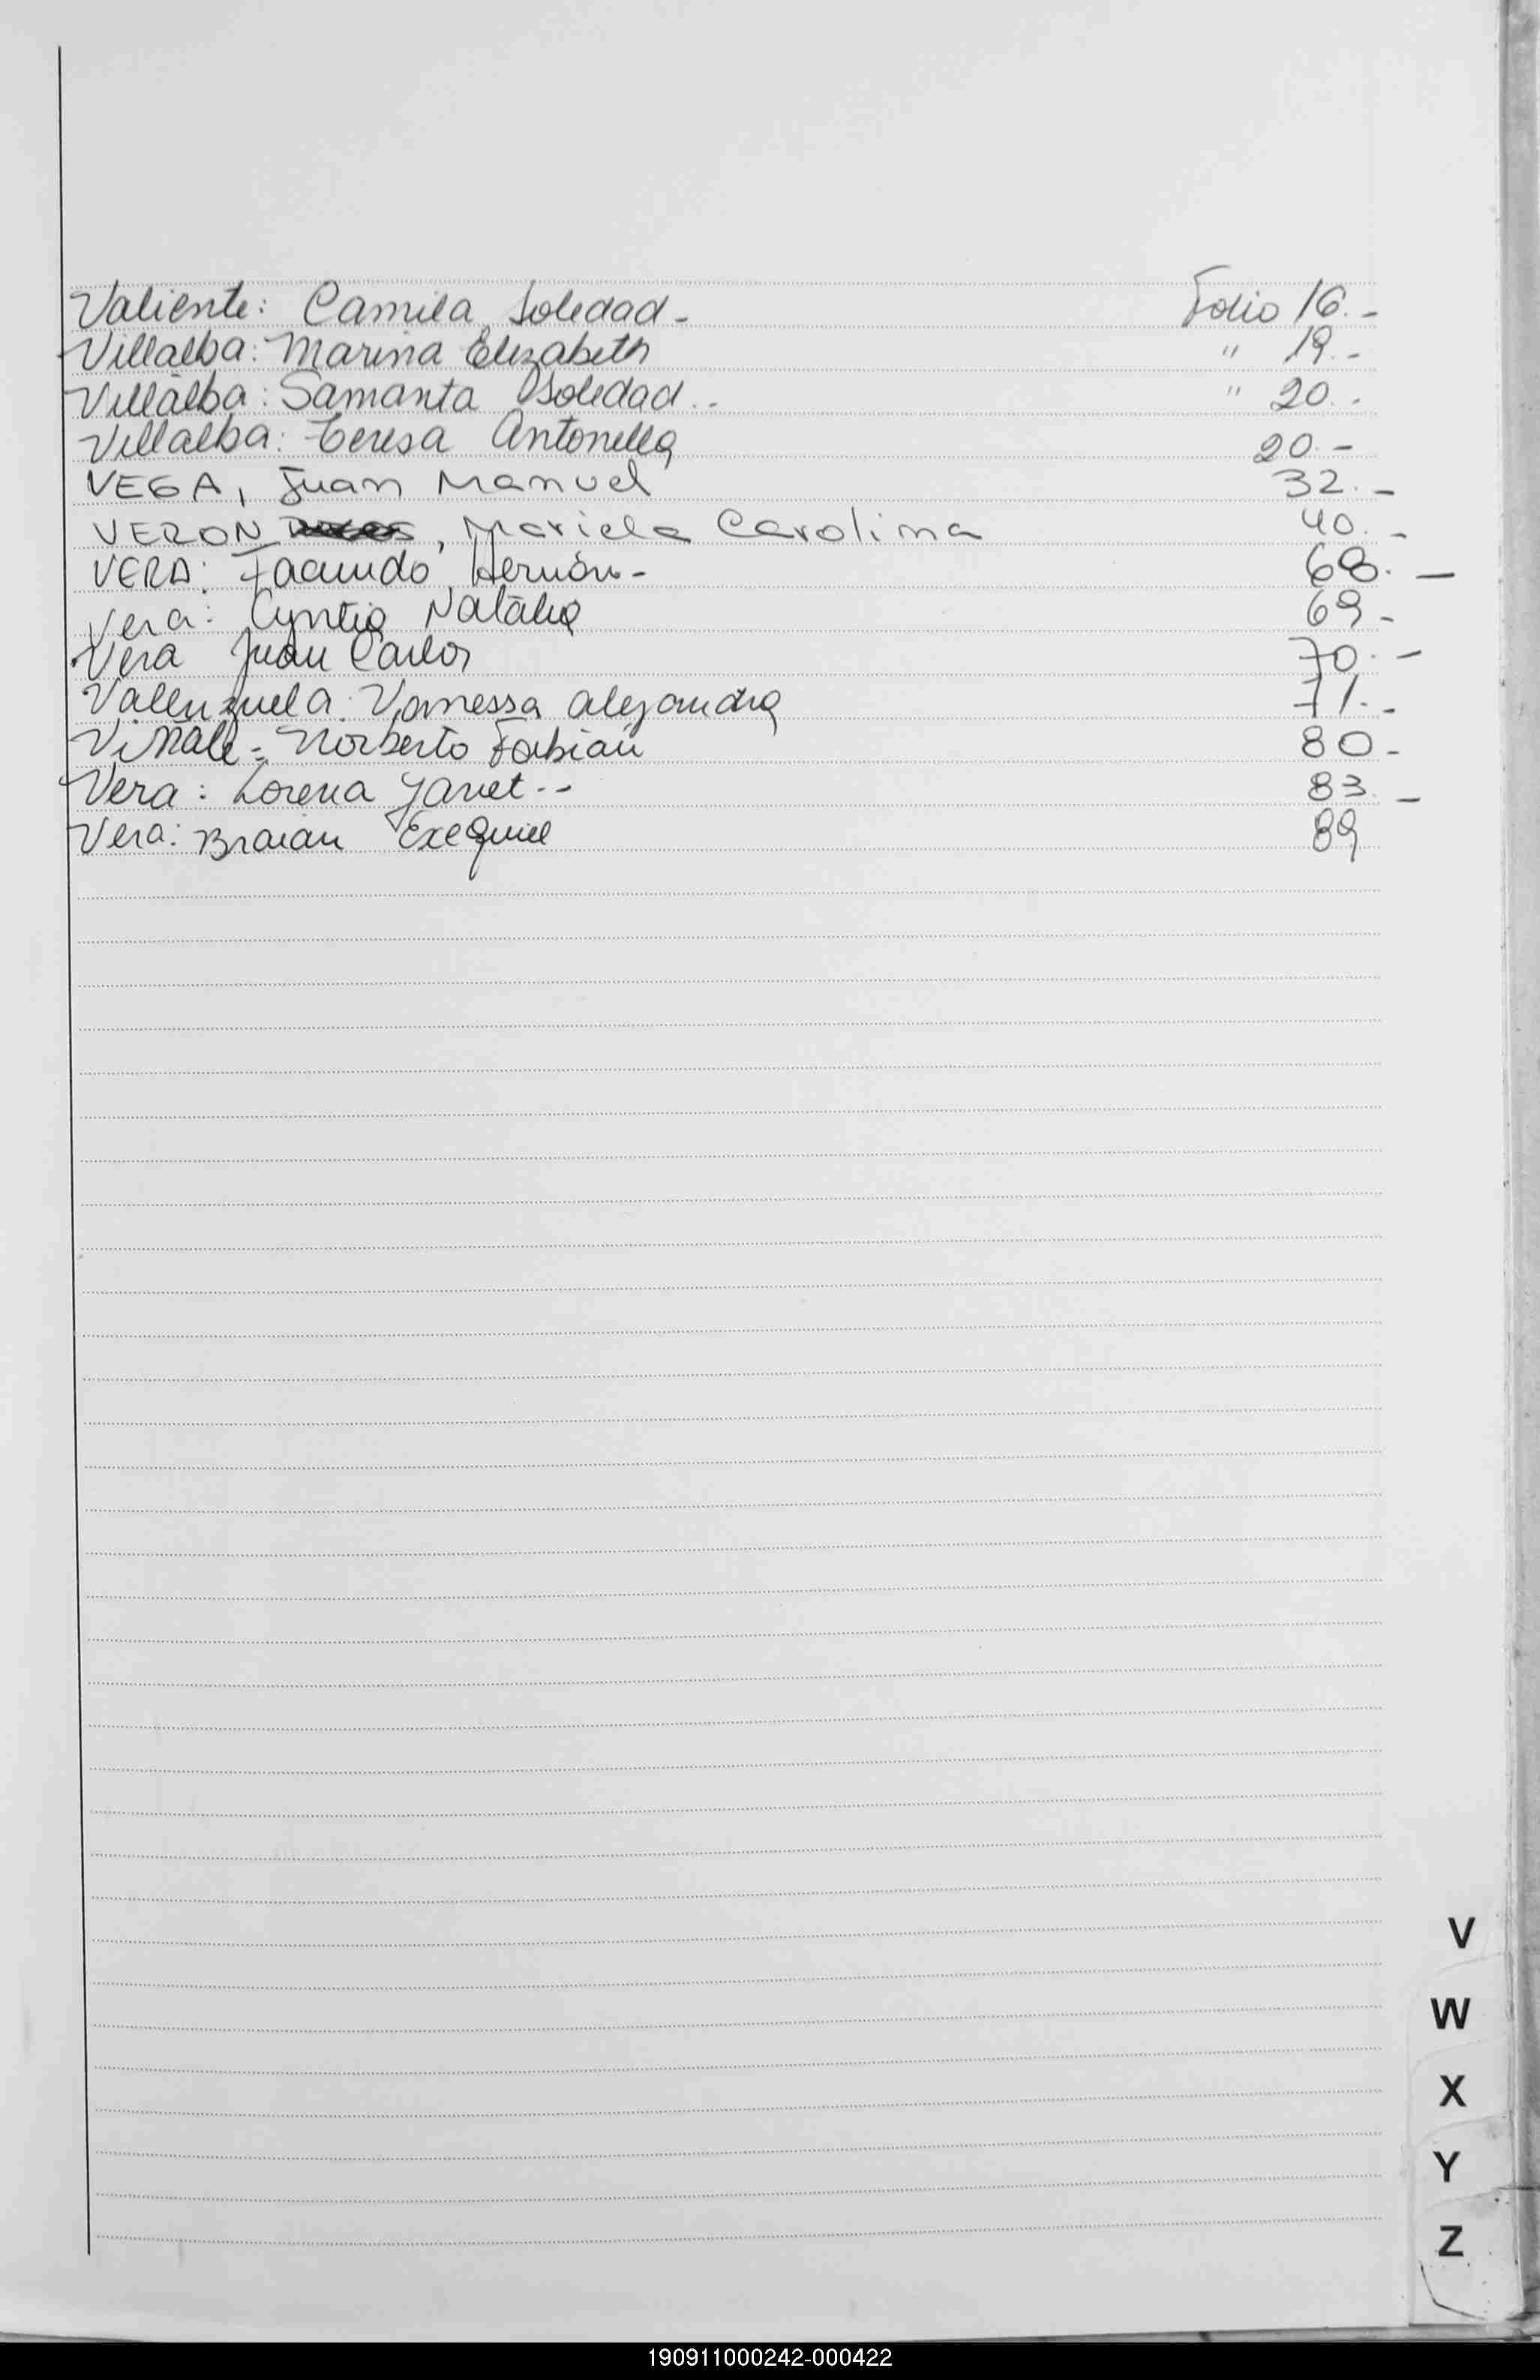 Valiente: Camila Soledad - Folio 16.-
Villalba: Marina Elizabeth " 19.-
Villalba: Samanta Soledad.. " 20.-
Villalba: Teresa Antonella 20.-
VEGA, Juan Manuel 32.-
VERON , Mariela Carolina 40.-
VERA: Facundo Hernán- 68.-
Vera: Cyntia Natalia 69-
Vera Juan Carlos 70.-
Vallenzuela: Vanessa Alejandra 71.-
Viñale= Norberto Fabián 80-
Vera: Lorena Janet-- 83.-
Vera: Braian Exequiel 89
V
W
X
Y
Z
190911000242-000422